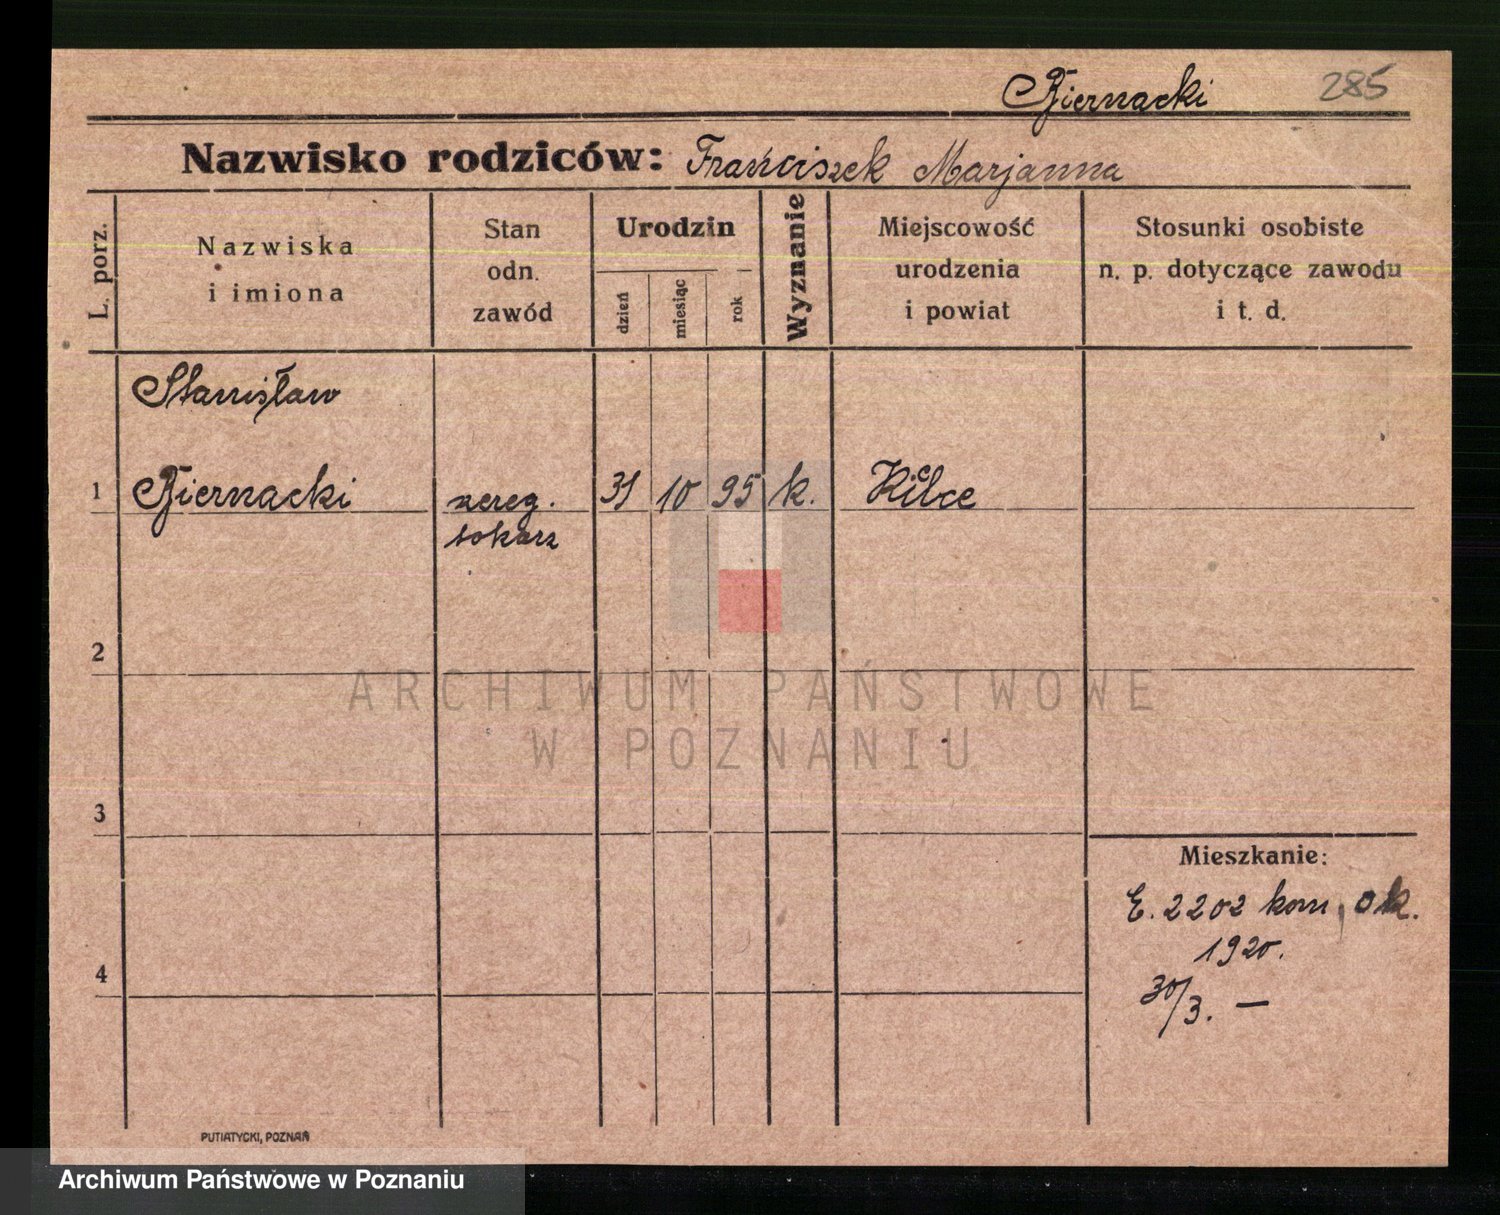 Biernacki 285
Nazwisko rodziców: Franciszek Marjanna
L. porz.
Nazwiska
i imiona
Stan
odn.
zawód
Urodzin
dzień
miesiąc
rok
Wyznanie
Miejscowość
urodzenia
i powiat
Stosunki osobiste
n. p. dotyczące zawodu
i t. d.
Stanisław
1 Biernacki szereg. 31 10 95 k. Kilce
tokarz
2
ARCHIWUM PAŃSTWOWE
W POZNANIU
3
Mieszkanie:
E. 2202 kom. ok.
1920.
4
30/3. —
PUTIATYCKI, POZNAŃ
Archiwum Państwowe w Poznaniu